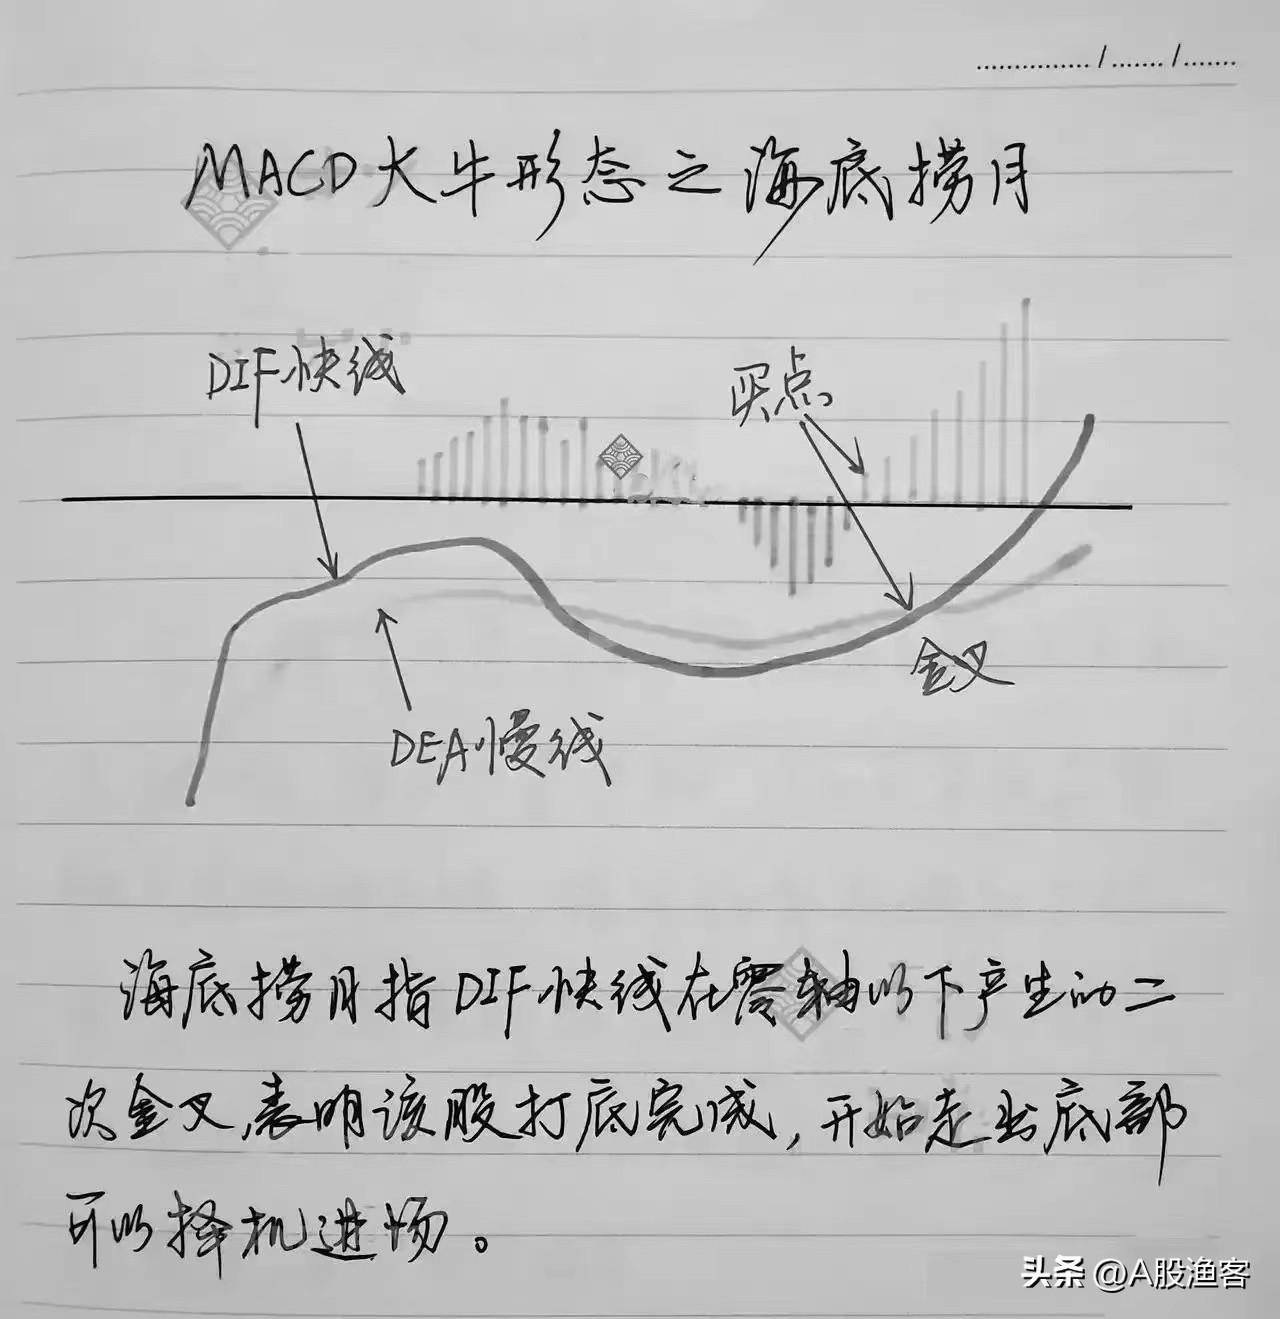 MACD大牛形态之海底捞月
DIF快线
买点
金叉
DEA慢线
海底捞月指DIF快线在零轴以下产生的二
次金叉,表明该股打底完成,开始走出底部
可以择机进场。
头条 @A股渔客